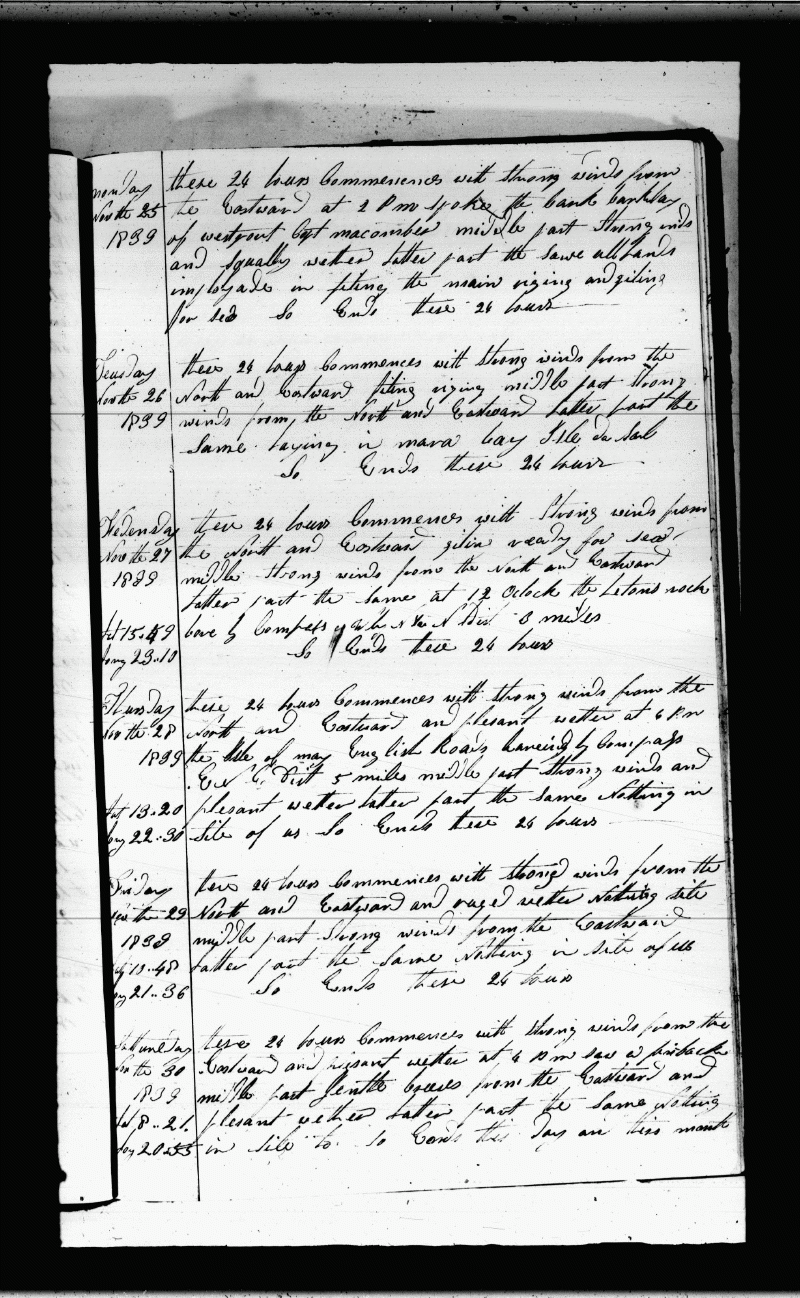 monday these 24 hours Commenences with strong winds from
Novthe 25 the Eastward at 2 P m spoke the bark barclay
1839 of westpout Capt macomber middle part strong inds
and squally wether latter part the same all hands
imployade in fiting the main riging and giting
for sea So Ends these 24 hours
Teusday these 24 hours Commences with strong winds from the
Novthe 26 North and Eastward fiting riging middle part strong
1839 winds from the North and Eastward latter part the
Same laying in mara bay Isle de Sal
So Ends these 24 hours
Wedensday these 24 hours Commences with Strong winds from
Novthe 27 the North and Eastward gitin ready for sea
1839 middle strong winds from the North and Eastward
latter part the same at 12 Oclock the Letons rock
Lat 15..49 bore by Compass N Dist 8 miles
Long 23..10 So Ends these 24 hours
Thursday these 24 hours Commences with strong winds from the
Novthe 28 North and Eastward and plesant wetter at 4 P m
1839 the Isle of may English Roads bareing by Compass
E N E Dist 5 miles middle part strong winds and
Lat 13..20 plesant wetter latter part the same Nothing in
Long 22..30 Site of us So Ends these 24 hours
Friday these 24 hours Commences with strong winds from the
Novthe 29 North and Eastward and ruged wether Nothing site
1839 middle part Strong winds from the Eastward
Latter part the same Nothing in site of us
Long 21..36 So Ends these 24 hours
Satturdday these 24 hours Commences with strong winds from the
Novthe 30 Eastward and plesant wetter at 4 P m saw a finback
1839 middle part gentle breses from the Eastward and
Lat 8..21 plesant wether latter part the same Nothing
Long 20..55 in site to So Ends this day an this month